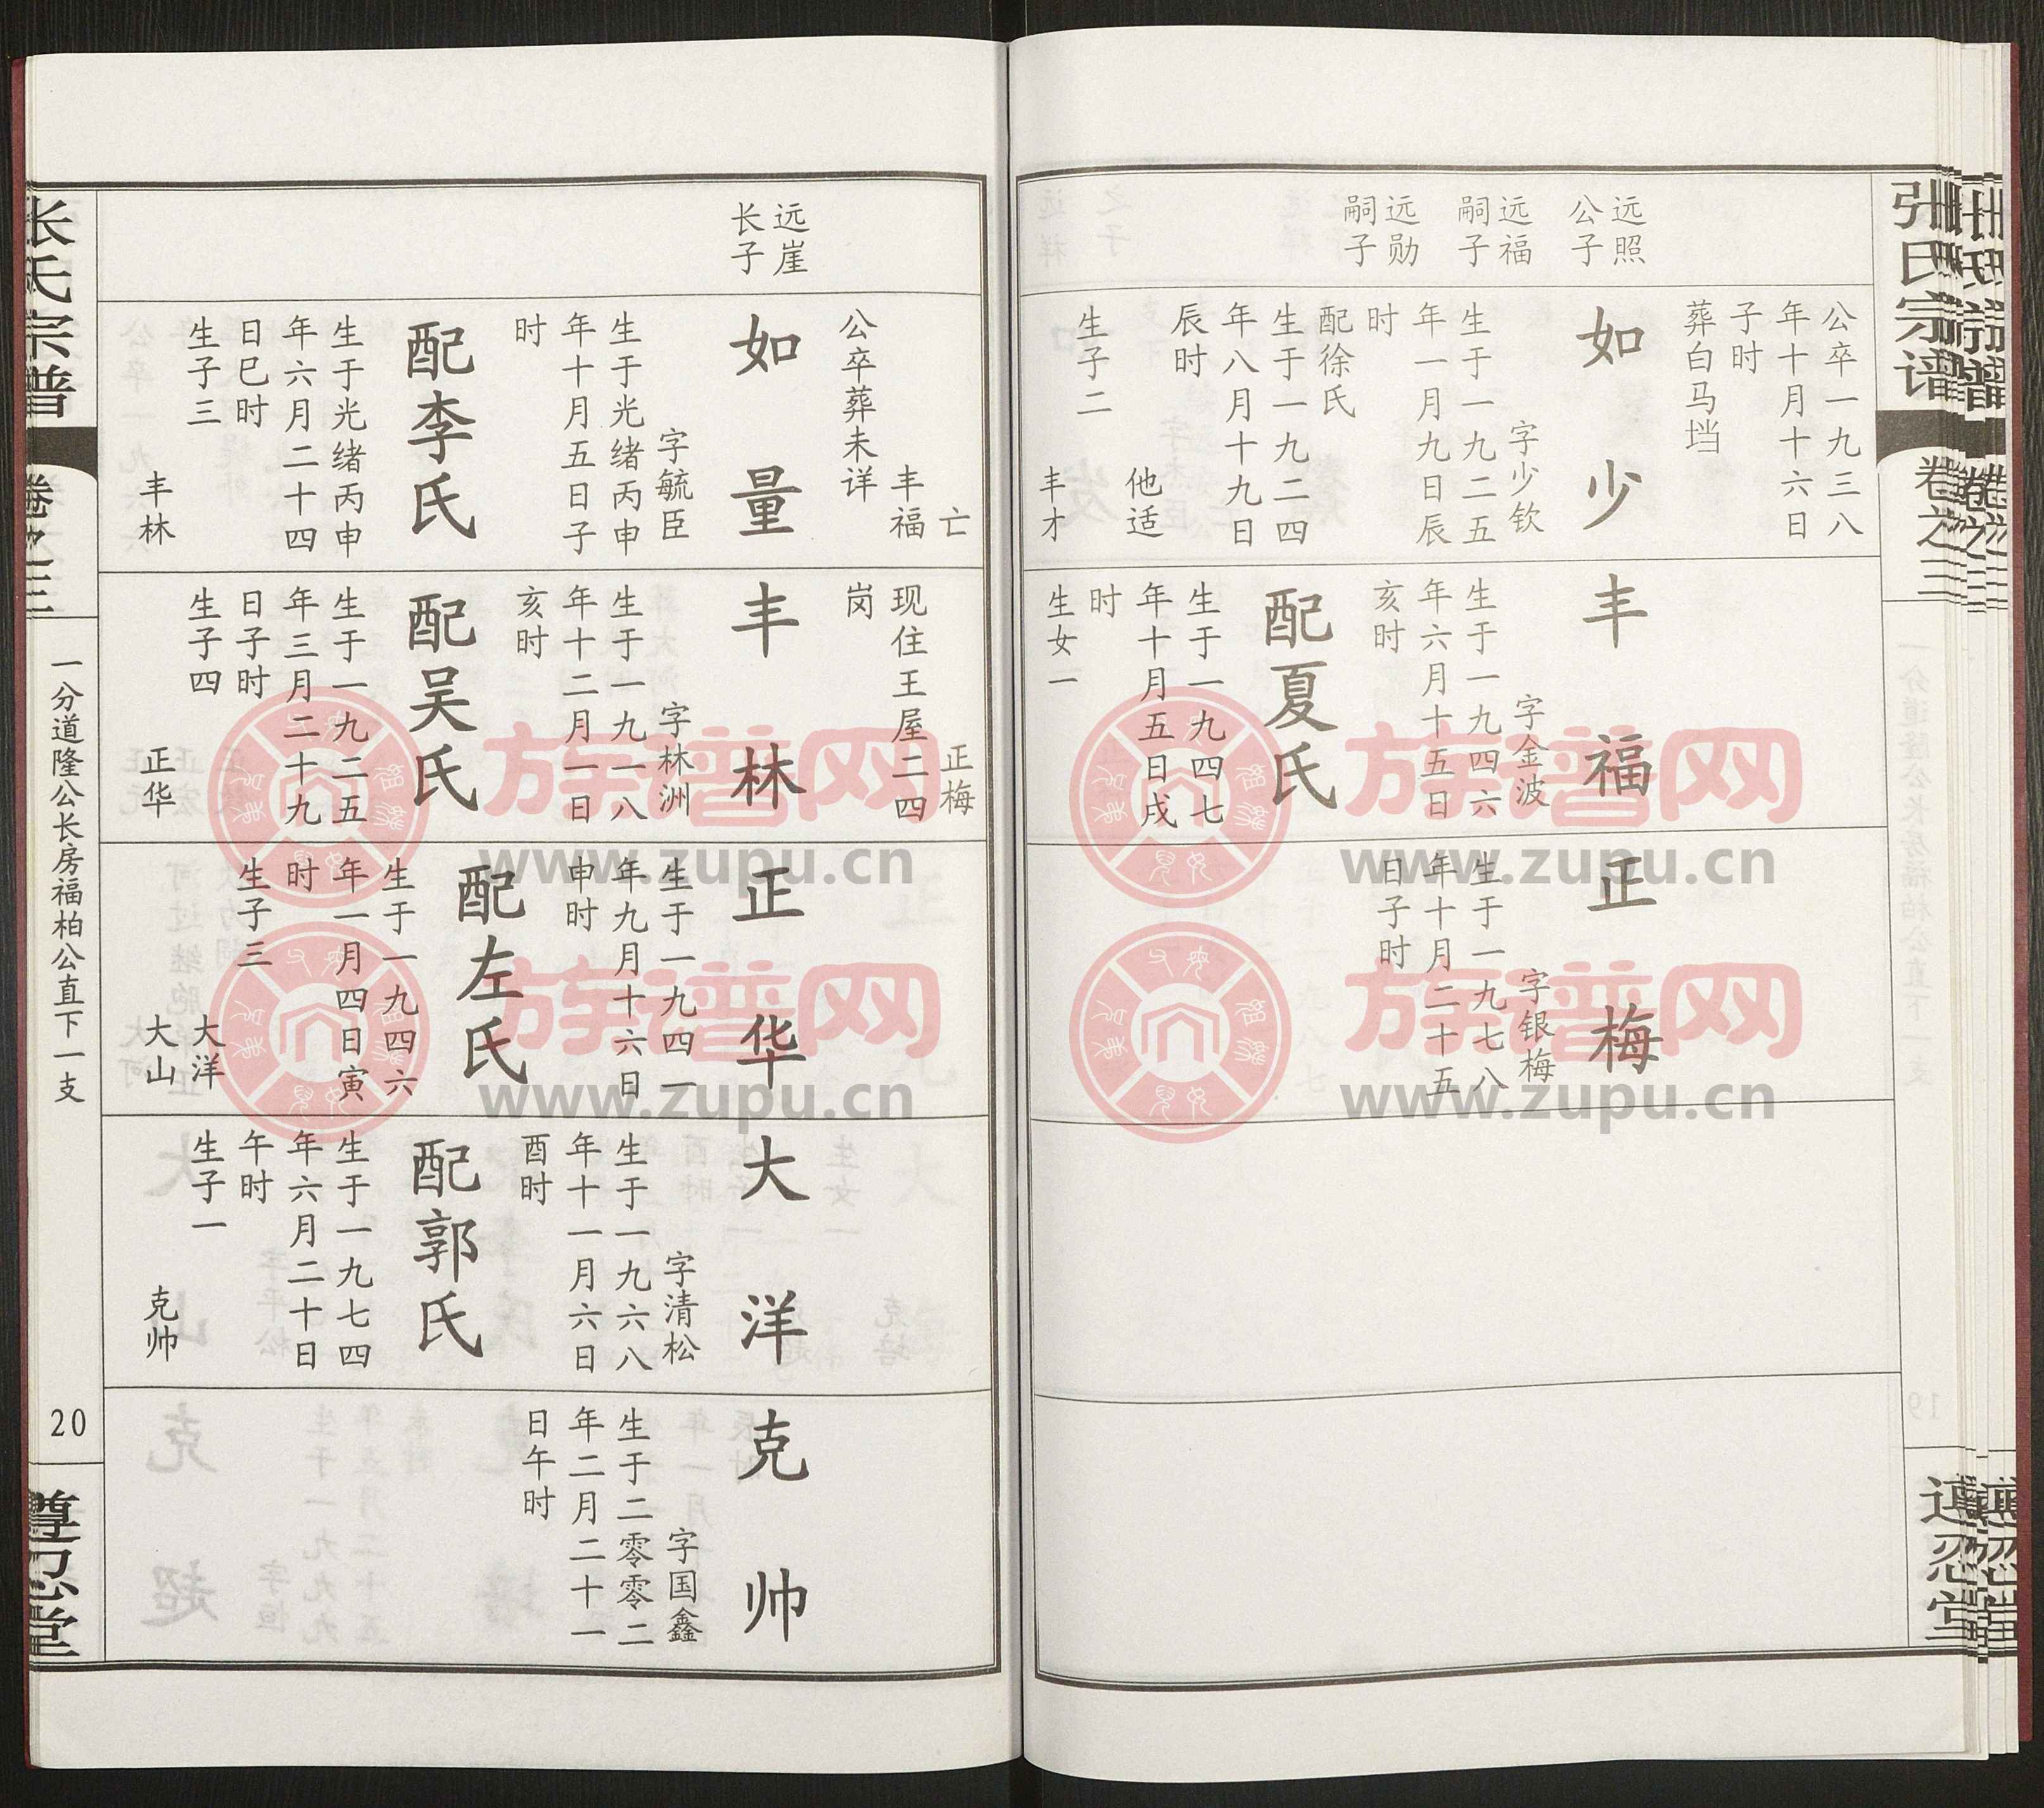 张氏宗谱
卷之三
遵忍堂
远照
公子
远福
嗣子
远勋
嗣子
公卒一九三八
年十月十六日
子时
葬白马垱
如少
字少钦
生于一九二五
年一月九日辰
时
配徐氏
生于一九二四
年八月十九日
辰时
他适
生子二
丰才
丰福
字金波
生于一九四六
年六月十五日
亥时
配夏氏
生于一九四七
年十月五日戌
时
生女一
正梅
字银梅
生于一九七八
年十月二十五
日子时
远崖
长子
亡
丰福
公卒葬未详
如量
字毓臣
生于光绪丙申
年十月五日子
时
配李氏
生于光绪丙申
年六月二十四
日巳时
生子三
丰林
正梅
现住王屋二四
岗
丰林
字林洲
生于一九一八
年十二月一日
亥时
配吴氏
生于一九二五
年三月二十九
日子时
生子四
正华
正华
生于一九四一
年九月十六日
申时
配左氏
生于一九四六
年一月四日寅
时
生子三
大洋
大山
大洋
字清松
生于一九六八
年十一月六日
酉时
配郭氏
生于一九七四
年六月二十日
午时
生子一
克帅
克帅
字国鑫
生于二零零二
年二月二十一
日午时
张氏宗谱
卷之三
一分道隆公长房福柏公直下一支
20
遵忍堂
族谱网
www.zupu.cn
族谱网
www.zupu.cn
族谱网
www.zupu.cn
族谱网
www.zupu.cn